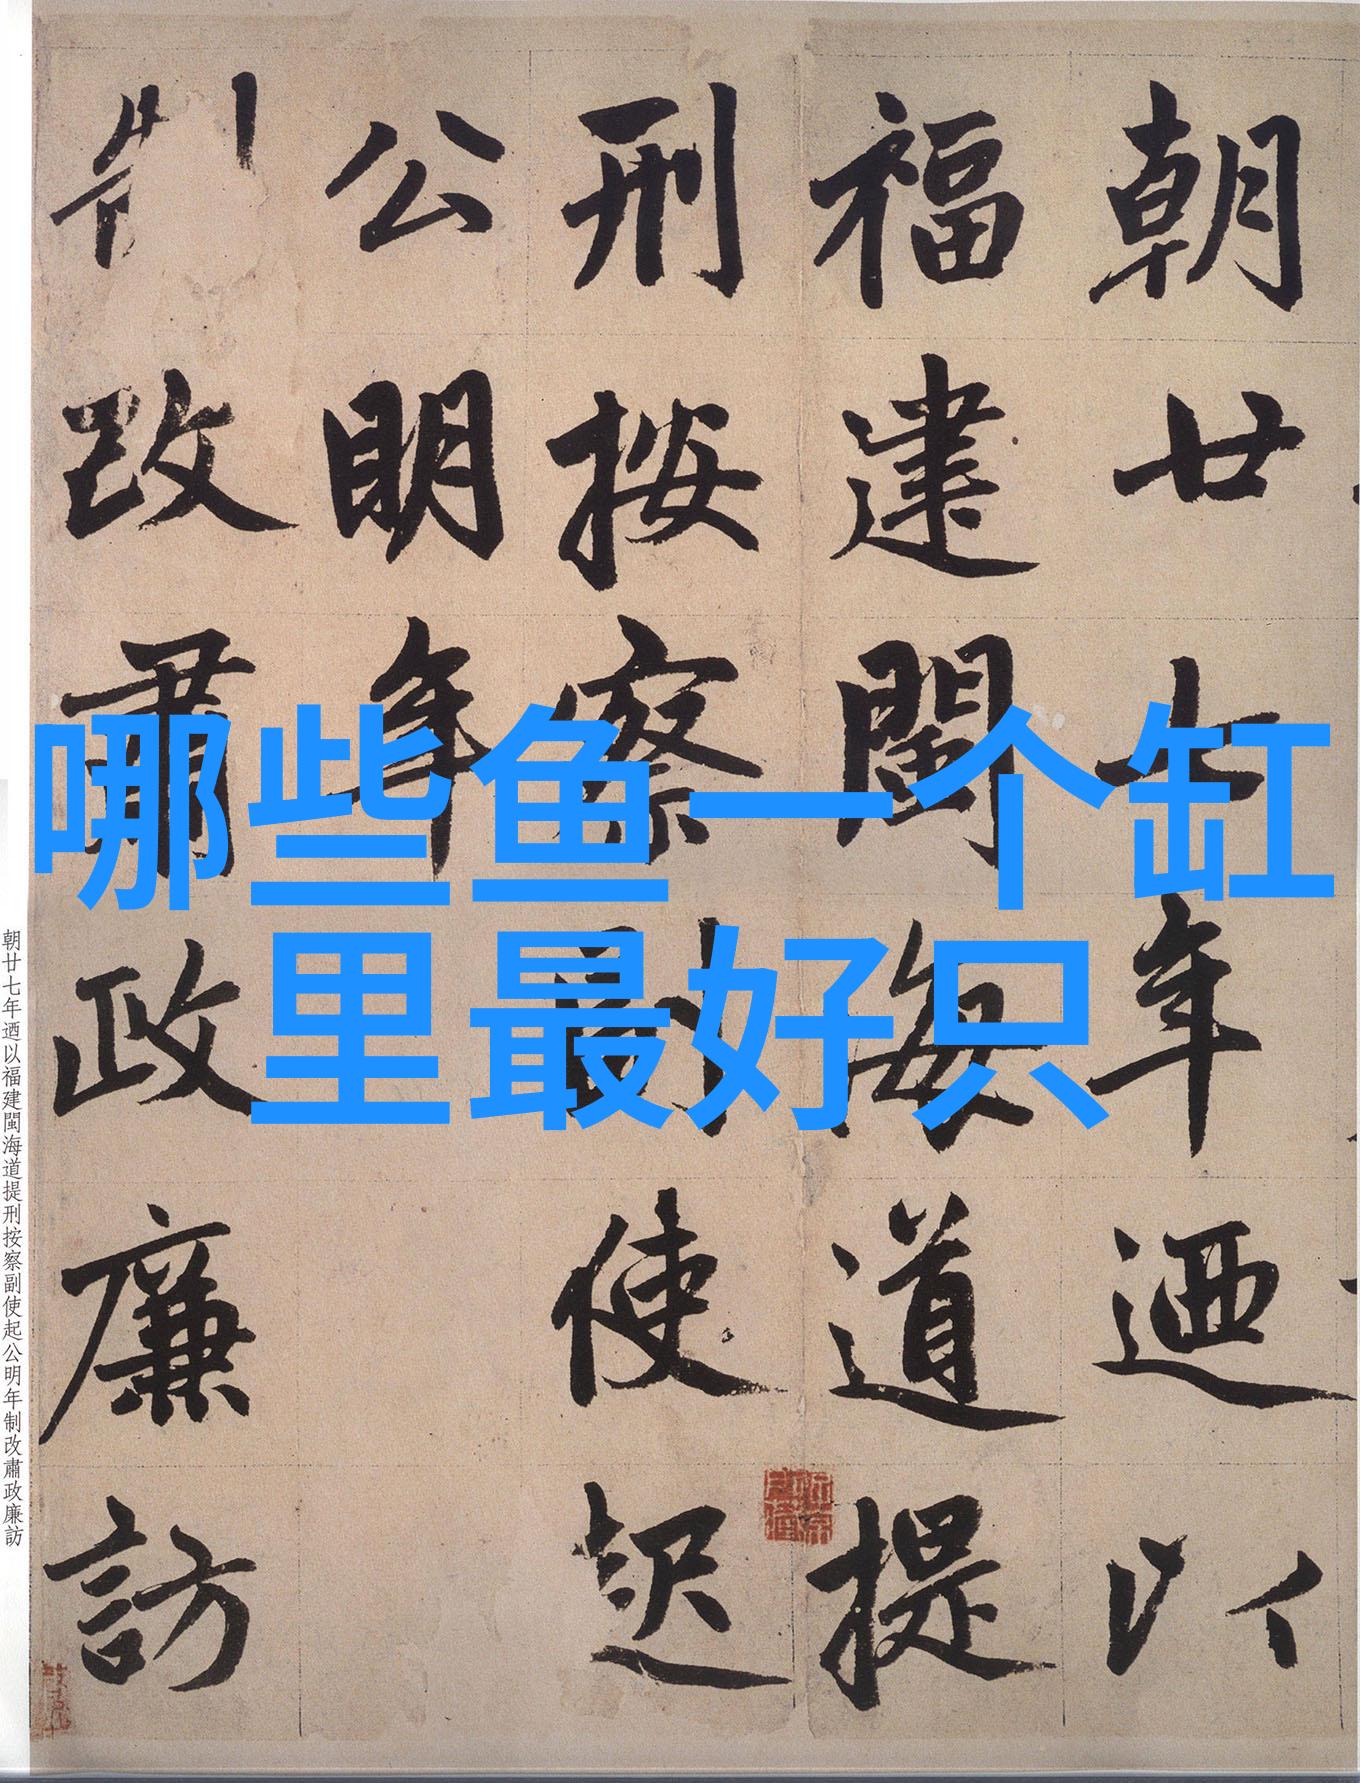 哪些鱼一个缸
里最好只
朝廿七年迺以
福建閩海道提
刑按察副使起
公明年
制改肅政廉訪
朝廿七年迺以福建閩海道提刑按察副使起公明年制改肅政廉訪